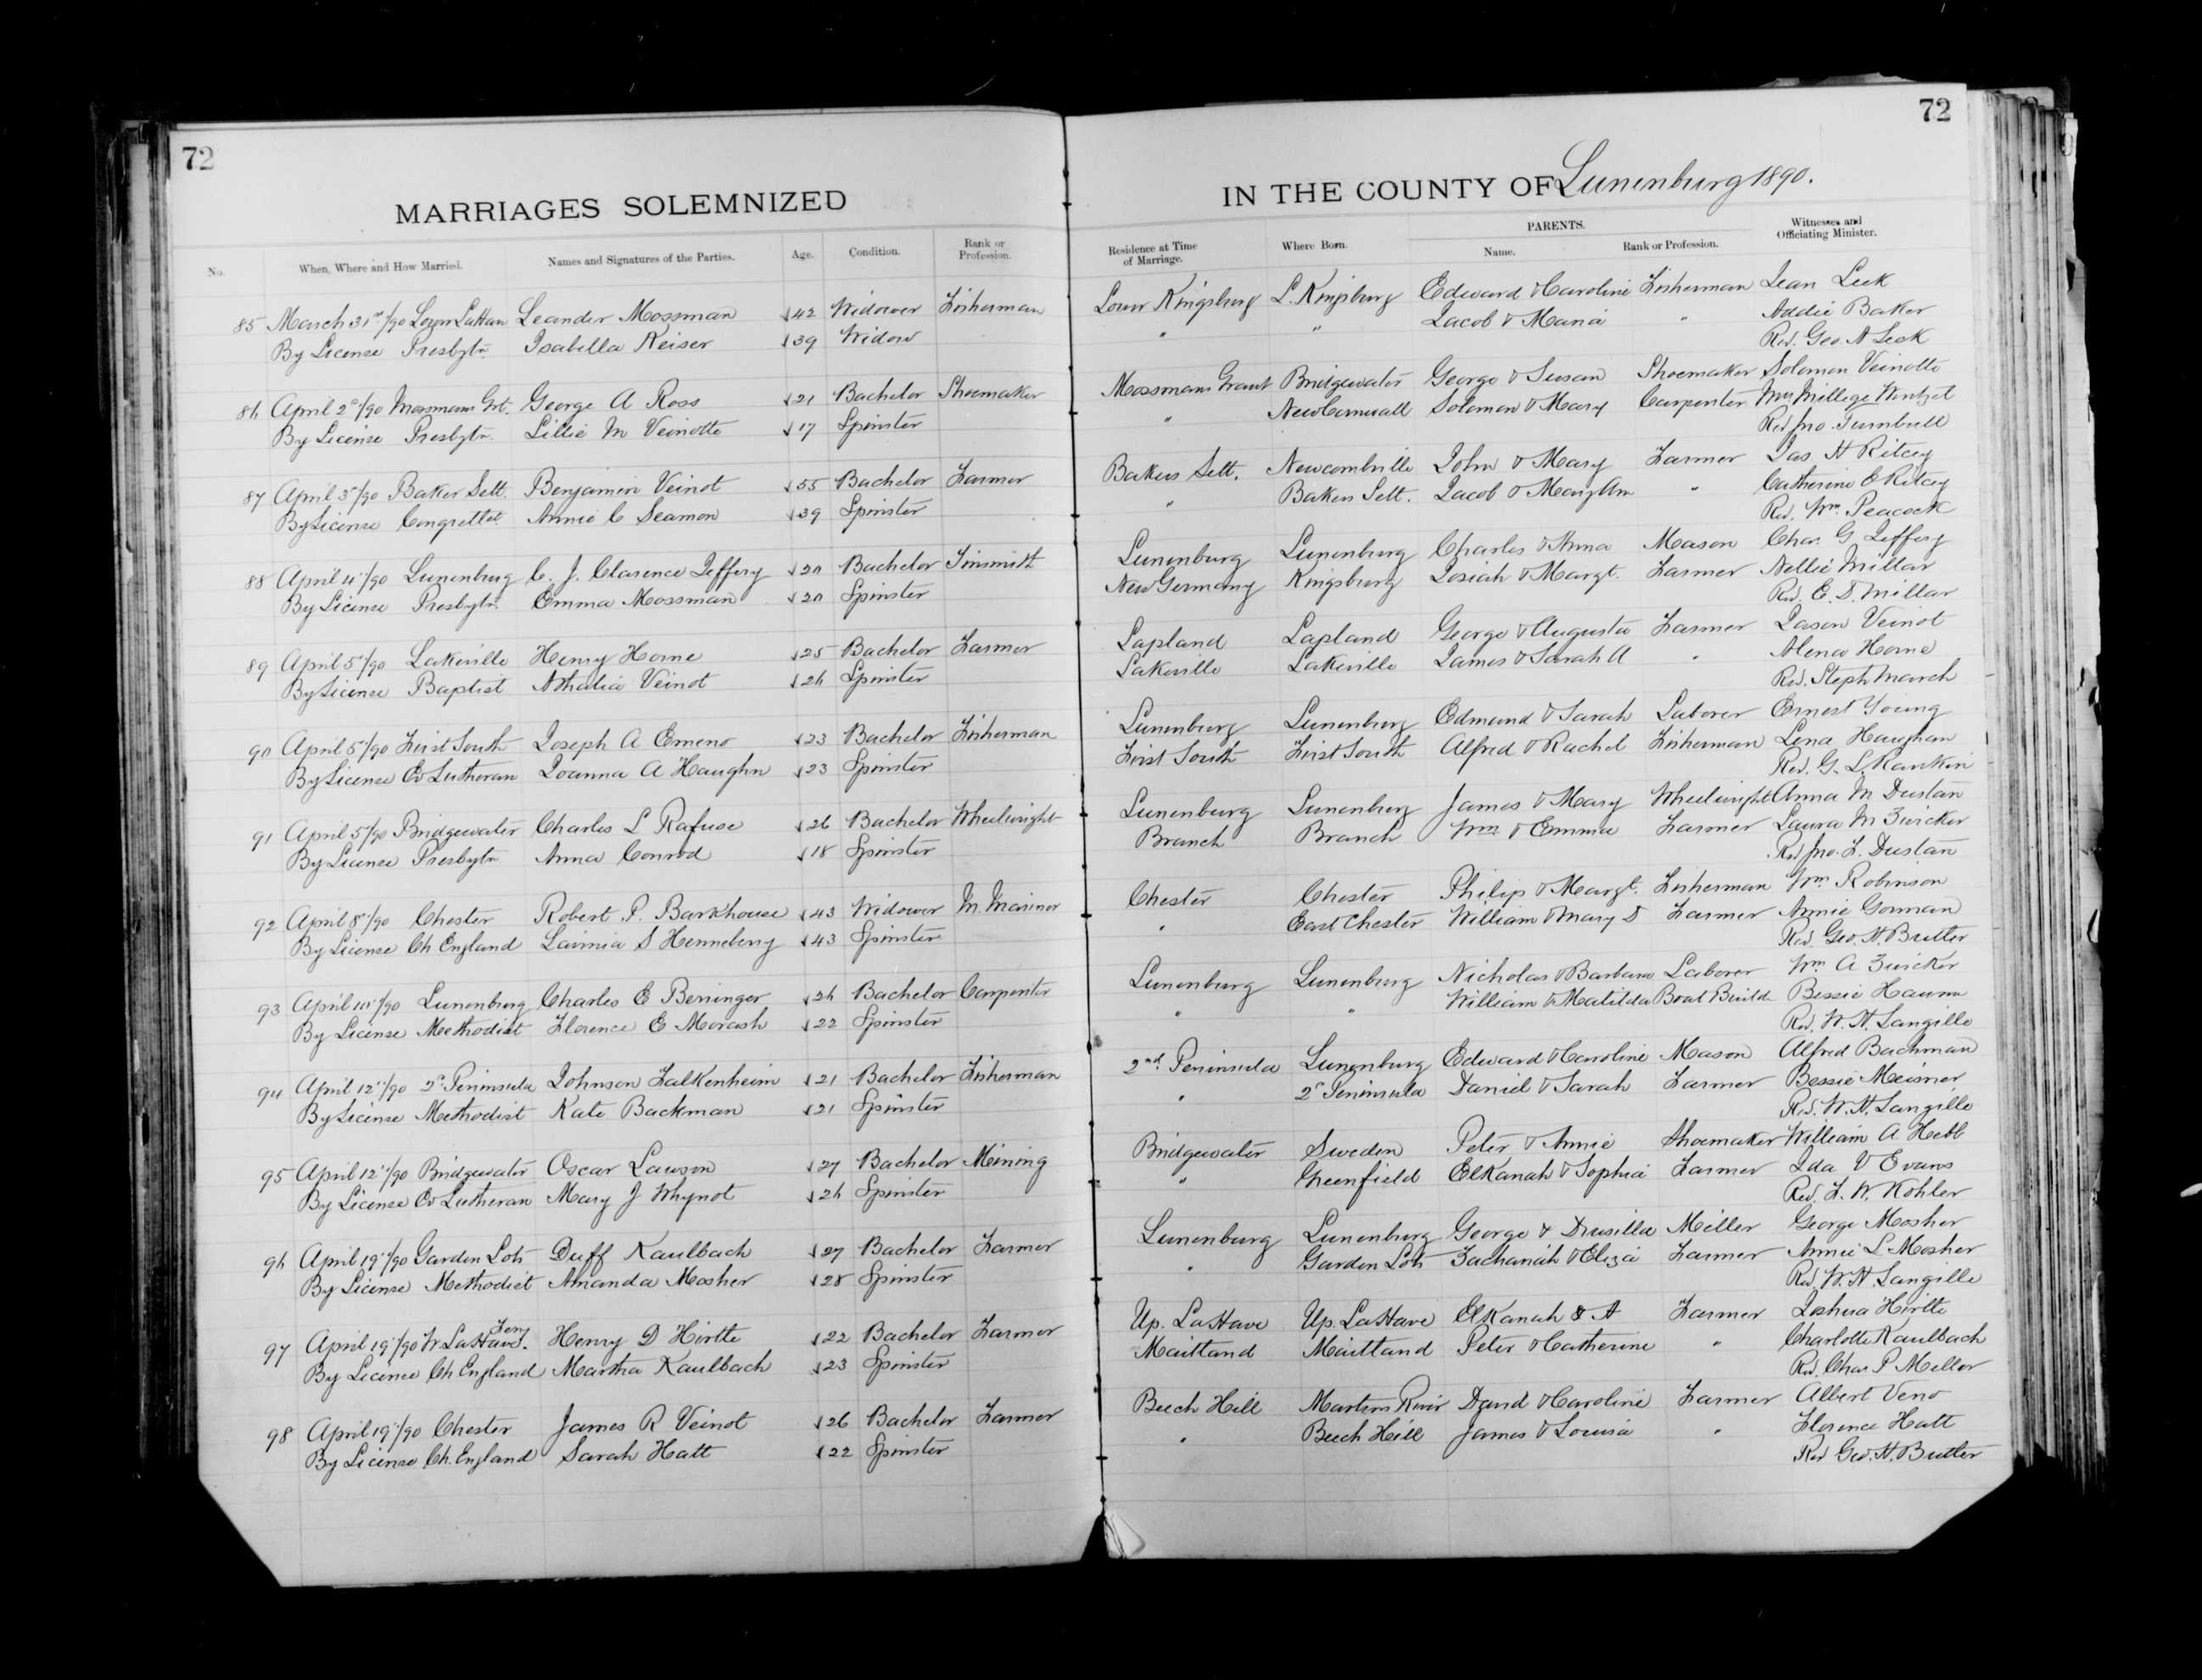 72
72
MARRIAGES SOLEMNIZED
IN THE COUNTY OF Lunenburg 1890.
No. When, Where and How Married. Names and Signatures of the Parties. Age. Condition. Rank or Profession. Residence at Time of Marriage. Where Born. PARENTS. Name. Rank or Profession. Witnesses and Officiating Minister.
85 March 31st/90 Leander Mossman 42 Widower Fisherman Lower Kingsburg L. Kingsburg Edward & Caroline Fisherman Jean Leck
By License Presbytn. Isabella Keiser 39 Widow " " Jacob & Maria " Addie Baker
Rev. Geo. A Leck
86 April 2d/90 Mossmans Grt. George A Ross 21 Bachelor Shoemaker Mossmans Grant Bridgewater George & Susan Shoemaker Solomon Veinotte
By License Presbytn. Lillie M Veinotte 17 Spinster " New Cornwall Solomon & Mary Carpenter Mrs Millege Wentzel
Rev Jno. Turnbull
87 April 3d/90 Baker Sett. Benjamin Veinot 55 Bachelor Farmer Bakers Sett. Newcombville John & Mary Farmer Jas. H Ritcey
By License Congrettl. Annie C Seamon 39 Spinster " Bakers Sett. Jacob & Mary Ann " Catherine E Ritcey
Rev. Wm. Peacock
88 April 4th/90 Lunenburg C. J. Clarence Jeffery 20 Bachelor Tinsmith Lunenburg Lunenburg Charles & Anna Mason Chas. G Jeffery
By License Presbytn. Emma Mossman 20 Spinster New Germany Kingsburg Josiah & Margt. Farmer Nellie Millar
Rev. E. D. Millar
89 April 5th/90 Lakeville Henry Horne 25 Bachelor Farmer Lapland Lapland George & Augusta Farmer Jason Veinot
By License Baptist Athalia Veinot 26 Spinster Lakeville Lakeville James & Sarah A " Alena Horne
Rev. Steph March
90 April 5th/90 First South Joseph A Emeno 23 Bachelor Fisherman Lunenburg Lunenburg Edmund & Sarah Laborer Ernest Young
By License Ev Lutheran Joanna A Haughn 23 Spinster First South First South Alfred & Rachel Fisherman Lena Haughan
Rev. G. L. Rankin
91 April 5th/90 Bridgewater Charles L Rafuse 26 Bachelor Wheelwright Lunenburg Lunenburg James & Mary Wheelwright Anna M Dustan
By License Presbytn Anna Conrod 18 Spinster Branch Branch Wm & Emma Farmer Laura M Zwicker
Rev Jno. F. Dustan
92 April 8th/90 Chester Robert P. Barkhouse 43 Widower M. Mariner Chester Chester Philip & Margt. Fisherman Wm. Robinson
By License Ch England Lavinia S Henneberry 43 Spinster " East Chester William & Mary S Farmer Annie Gorman
Rev. Geo. H. Butler
93 April 10th/90 Lunenburg Charles E Beringer 26 Bachelor Carpenter Lunenburg Lunenburg Nicholas & Barbara Laborer Wm A Zwicker
By License Methodist Florence E Morash 22 Spinster " " William & Matilda Boat Build Bessie
Rev. W. H. Langille
94 April 12th/90 2d Peninsula Johnson Falkenheim 21 Bachelor Fisherman 2nd Peninsula Lunenburg Edward & Caroline Mason Alfred Bachman
By License Methodist Kate Backman 21 Spinster " 2d Peninsula Daniel & Sarah Farmer Bessie Meisner
Rev. W. H. Langille
95 April 12th/90 Bridgewater Oscar Lawson 27 Bachelor Mining Bridgewater Sweden Peter & Annie Shoemaker William A Hebb
By License Ev Lutheran Mary J Whynot 26 Spinster " Greenfield Elkanah & Sophia Farmer Ida V Evans
Rev. F. W. Kohler
96 April 19th/90 Garden Lots Duff Kaulbach 27 Bachelor Farmer Lunenburg Lunenburg George & Drusilla Miller George Mosher
By License Methodist Amanda Mosher 28 Spinster " Garden Lots Zachariah & Eliza Farmer Annie L Mosher
Rev. W. H. Langille
97 April 19th/90 W. LaHave Ferry Henry D Hirtle 22 Bachelor Farmer Up. LaHave Up. LaHave Elkanah & A Farmer Joshua Hirtle
By License Ch England Martha Kaulbach 23 Spinster Maitland Maitland Peter & Catherine " Charlotte Kaulbach
Rev. Chas P Mellor
98 April 19th/90 Chester James R Veinot 26 Bachelor Farmer Beech Hill Martins River David & Caroline Farmer Albert Veno
By License Ch. England Sarah Hatt 22 Spinster " Beech Hill James & Louisa " Florence Hatt
Rev Geo. H. Butler